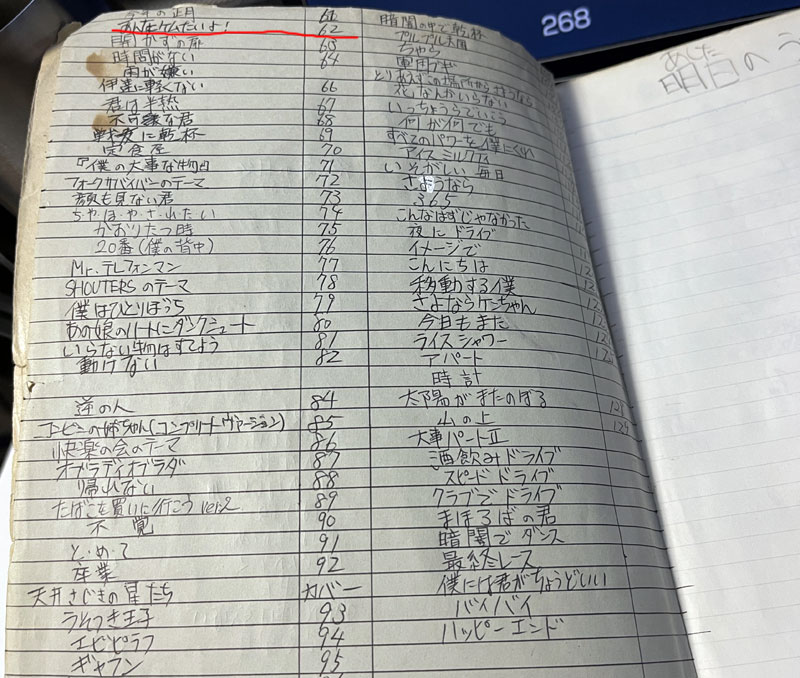 の正月 61
あんたケムたいよ! 62
開かずの扉 63
時間がない 64
雨が嫌い
伊達に軽くない 66
君は半熟 67
不可解な君 68
戦友に乾杯 69
定食屋 70
『僕の大事な物』 71
フォークサバイバーのテーマ 72
顔も見ない君 73
ちや・ほ・や・さ・れたい 74
かおりたつ時 75
20番(僕の背中) 76
Mr.テレフォンマン 77
SHOUTERSのテーマ 78
僕はひとりぼっち 79
あの娘のハートにダンクシュート 80
いらない物はすてよう 81
動けない 82
逆の人 84
コンビニの姉ちゃん(コンプリートヴァージョン) 85
快楽の会のテーマ 86
オブラディオブラダ 87
帰れない 88
たばこを買いに行こう ver.2 89
不覚 90
と・め・て 91
産業 92
天井さじきの星たち カバー
うそつき王子 93
エビピラフ 94
ギャフン 95
暗闇の中で乾杯
プルプル天国
ちゃら
軍用ナギ
花なんかいらない
いっちょうらでいこう
何が何でも
すべてのパワーを僕にくれ
アイスミルクティ
いそがしい毎日
さようなら
365
こんなはずじゃなかった
夜にドライブ
イメージで
こんにちは
移動する僕
さよならケンちゃん
今日もまた
ライスシャワー
アパート
時計
太陽がまたのぼる
山の上
大事パートⅡ
酒飲みドライブ
スピードドライブ
クラブでドライブ
まほろばの君
暗闇でダンス
最終レース
僕には君がちょうどいい
バイバイ
ハッピーエンド
268
あした
明日のう